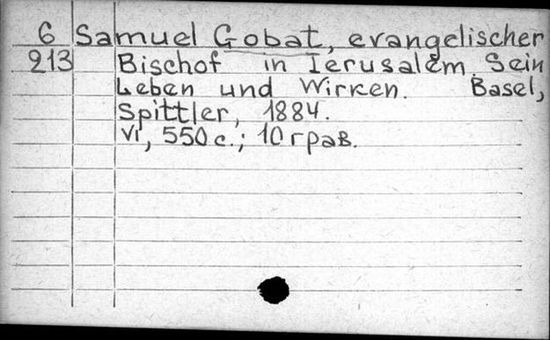 6 Samuel Gobat, evangelischer
213 Bischof in Ierusalem. Sein
Leben und Wirken. Basel,
Spittler, 1884.
VI, 550 с.; 10 грав.